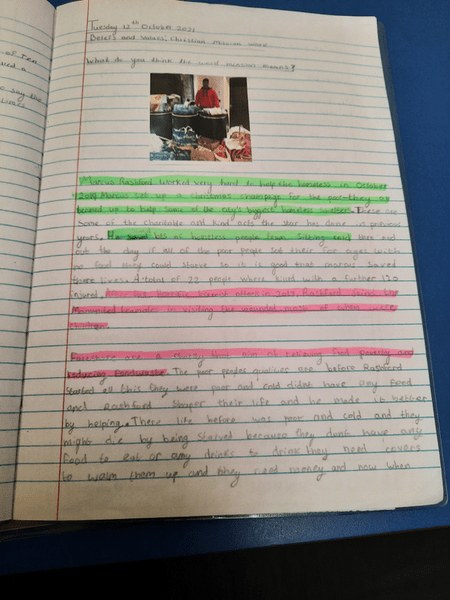 of ten
say the
Tuesday 12th October 2021
Beliefs and values: Christian Mission work
What do you think the word mission means?
Marcus Rashford worked very hard to help the homeless in October
2019 Marcus set up a Christmas champaign for the poor they
teamed up to help some of the city's biggest homeless These are
Some of the charable and kind acts the star has done in previous
years. He saved lots of homeless people from sitting and
out the day if all of the poor people sat there for ages with
no food they could starve so it is good that marcus saved
there lives. A total of 22 people where killed with a further 120
injured. After the horrific attack in July, Rashford joined
Manchester in visiting the wounded many of whom were
children.
Fareshare are a charity that aim at relieving food poverty and
reducing foodwaste. The poor peoples qualities are before Rashford
started all this they were poor and cold didnt have any food
and Rashford shaped their life and he made it better
by helping. There life before was poor and cold and they
might die by being starved because they dont have any
food to eat or any drinks to drink they need covers
to warm them up and they need money and now when